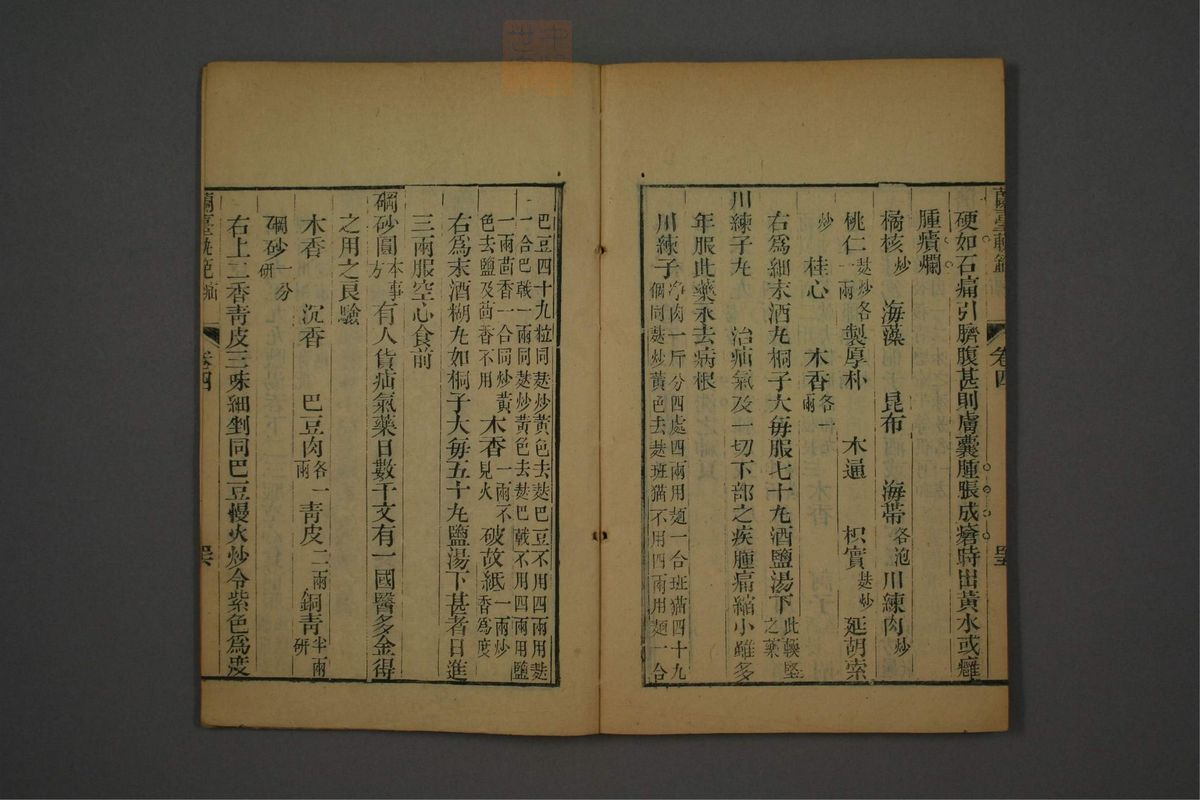 蘭臺軌範 卷四
硬如石痛引臍腹甚則膚囊腫脹成瘡時出黃水或癰
腫㿉爛
橘核炒 海藻 昆布 海帶各泡 川練肉炒
桃仁麩炒各一兩 製厚朴 木通 枳實麩炒 延胡索
炒 桂心 木香各一兩
右爲細末酒丸桐子大每服七十丸酒鹽湯下此輭堅之藥
川練子丸 治疝氣及一切下部之疾腫痛縮小雖多
年服此藥永去病根
川練子淨肉一斤分四處四兩用麵一合班猫四十九個同麸炒黃色去麸班猫不用四兩用麵一合
巴豆四十九粒同麸炒黃色去麸巴豆不用四兩用麸一合巴戟一兩同麸炒黃色去麸巴戟不用四兩用鹽
一兩茴香一合同炒黃色去鹽及茴香不用 木香一兩不見火 破故紙一兩炒香爲度
右爲末酒糊丸如桐子大每五十丸鹽湯下甚者日進
三兩服空心食前
硇砂圓本事方 有人貨疝氣藥日數千文有一國醫多金得
之用之良驗
木香 沉香 巴豆肉各一兩 靑皮二兩 銅靑半兩研
硇砂一分研
右上二香靑皮三味細剉同巴豆慢火炒令紫色爲度
蘭臺軌範 疝 卷四